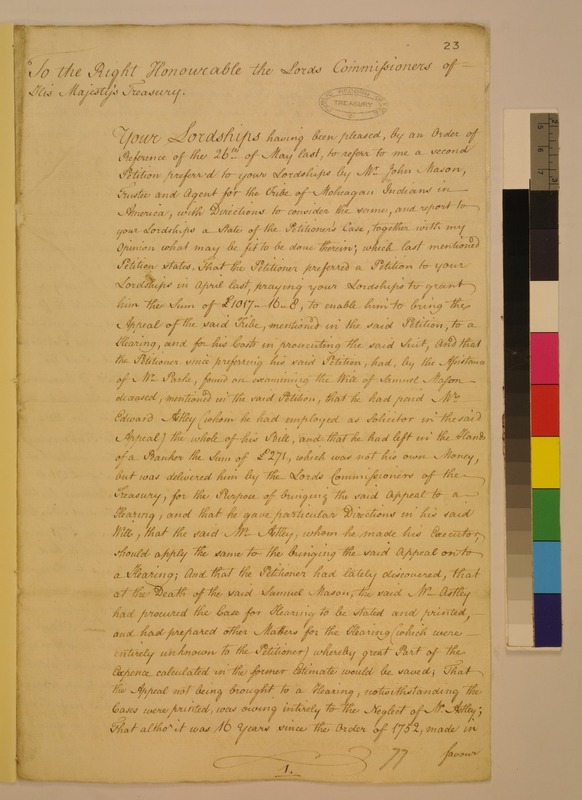 23
To the Right Honourable the Lords Commissioners of
His Majesty's Treasury.
TREASURY
Your Lordships having been pleased, by an Order of
Reference of the 26th of May last, to referr to me a second
Petition preferr'd to your Lordships by Mr. John Mason,
Trustee and Agent for the Tribe of Moheagan Indians in
America, with Directions to consider the same, and report to
your Lordships a State of the Petitioner's Case, together with my
Opinion what may be fit to be done therein; which last mentioned
Petition states, That the Petitioner preferred a Petition to your
Lordships in April last, praying your Lordships to grant
him the Sum of £1017-16-8, to enable him to bring the
Appeal of the said Tribe, mentioned in the said Petition, to a
Hearing, and for his Costs in prosecuting the said Suit, And that
the Petitioner since preferring his said Petition, had, by the Assistance
of Mr. Parke, found on examining the Will of Samuel Mason
deceased, mentioned in the said Petition, that he had paid Mr.
Edward Astley (whom he had employed as Solicitor in the said
Appeal) the whole of his Bill, and that he had left in the Hands
of a Banker the Sum of £271, which was not his own Money,
but was delivered him by the Lords Commissioners of the
Treasury, for the Purpose of bringing the said Appeal to a
Hearing, and that he gave particular Directions in his said
Will, that the said Mr. Astley, whom he made his Executor,
should apply the same to the bringing the said Appeal on to
a Hearing; And that the Petitioner had lately discovered, that
at the Death of the said Samuel Mason, the said Mr. Astley
had procured the Case for Hearing to be stated and printed,
and had prepared other Matters for the Hearing (which were
entirely unknown to the Petitioner) whereby great Part of the
Expence calculated in the former Estimate would be saved; That
the Appeal not being brought to a Hearing, notwithstanding the
Cases were printed, was owing entirely to the Neglect of Mr. Astley;
That altho' it was 16 Years since the Order of 1752, made in
77
favour
1.